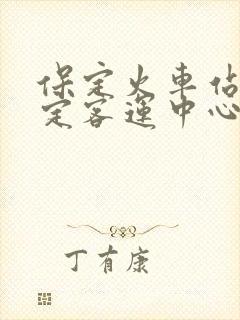 保定火車佔
定客運中心
丁有康